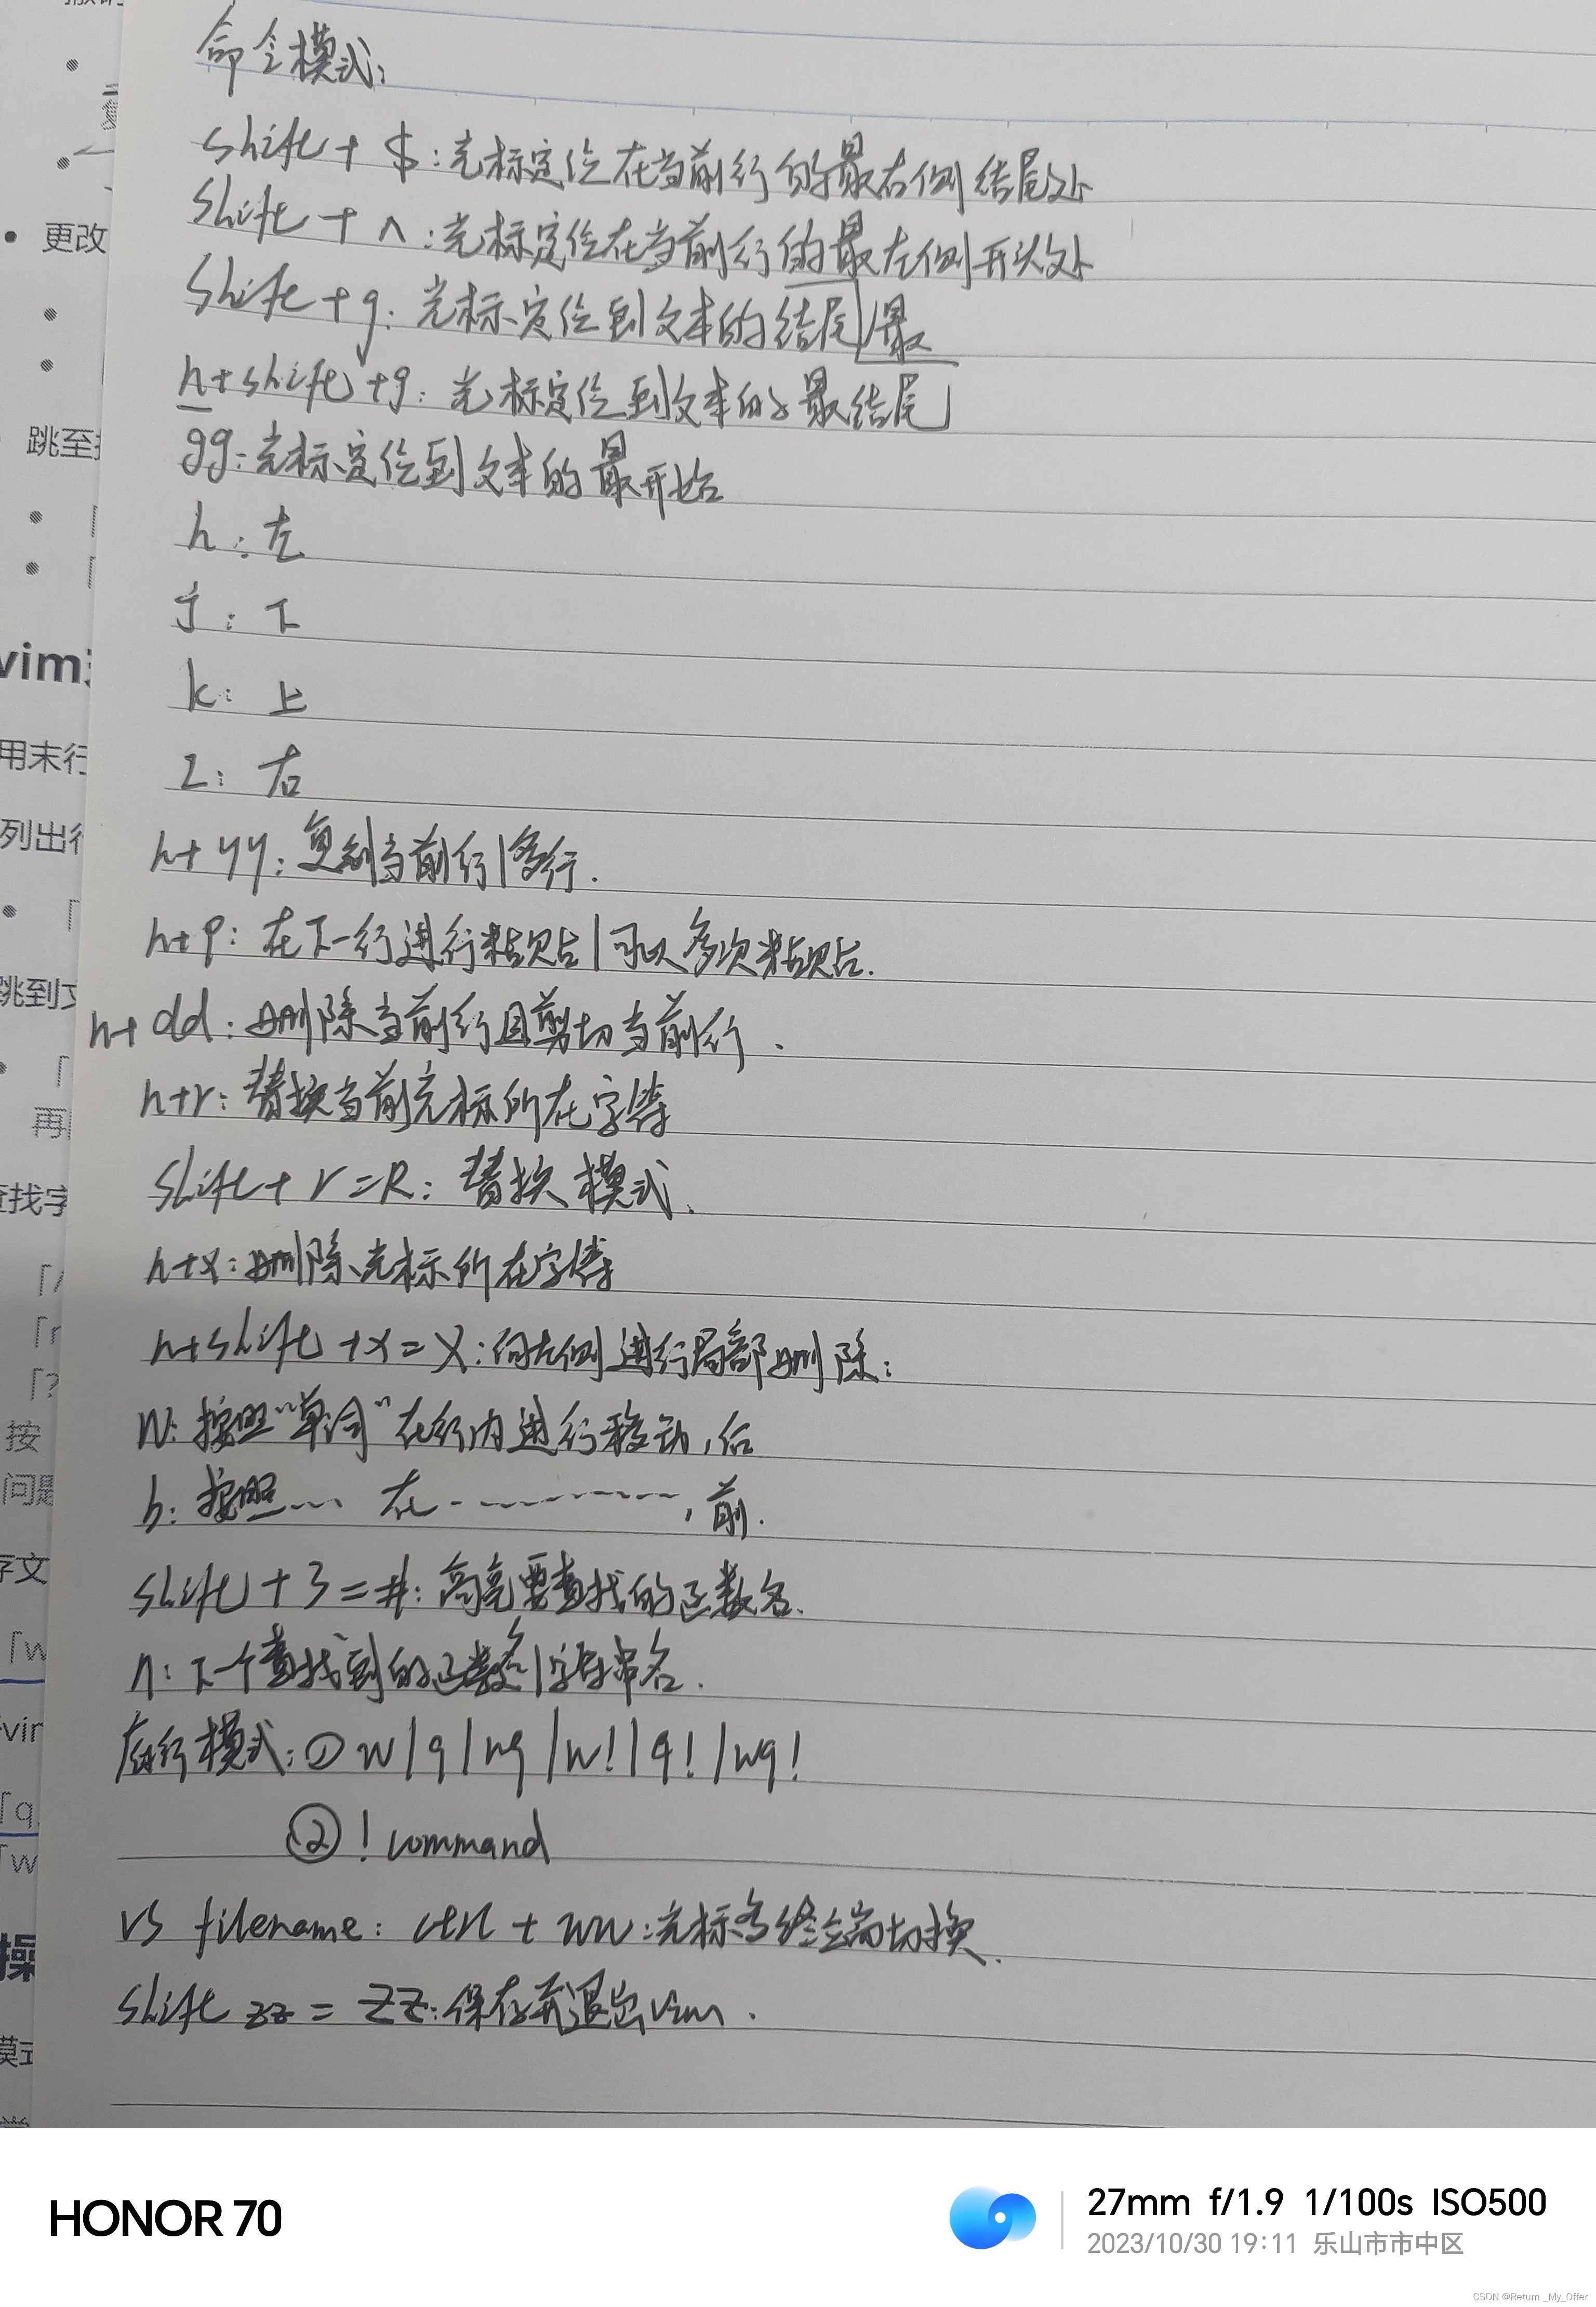 命令模式:
shift + $:光标定位在当前行的最右侧结尾处
shift + ^:光标定位在当前行的最左侧开头处
shift + g:光标定位到文本的结尾/最
n+shift+g:光标定位到文本的最结尾
gg:光标定位到文本的最开始
h:左
j:下
k:上
l:右
n+yy:复制当前行|多行.
n+p:在下一行进行粘贴|可以多次粘贴.
n+dd:删除当前行且剪切当前行.
n+r:替换当前光标所在字符
shift+r=R:替换模式.
n+x:删除光标所在字符
n+shift+x=X:向左侧进行局部删除:
w:按照"单词"在行内进行移动,后
b:按照... 在- - - - - - - -,前.
shift+3=#:高亮要查找的函数名.
n:下一个查找到的函数名|字符串名.
底行模式:① w|q|wq|w!|q!|wq!
② ! command
vs filename:ctrl + ww:光标多终端切换.
shift zz = ZZ:保存并退出vim.
更改
跳至
vim
用末行
列出行
跳到文
再
查找字
「/
「n
「?
按
问题
存文
「w
vim
「q
「w
操
模式
HONOR 70
27mm f/1.9 1/100s ISO500
2023/10/30 19:11 乐山市市中区
CSDN @Return _My_Offer